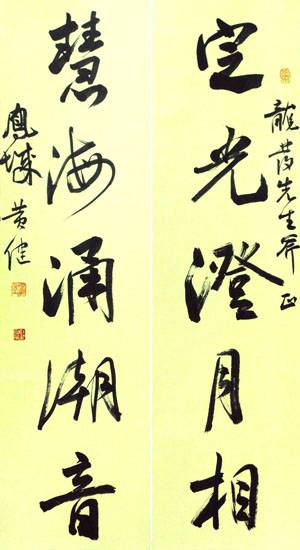 龍黃先生弈正
定光澄月相
慧海涌潮音
鳳城黄健